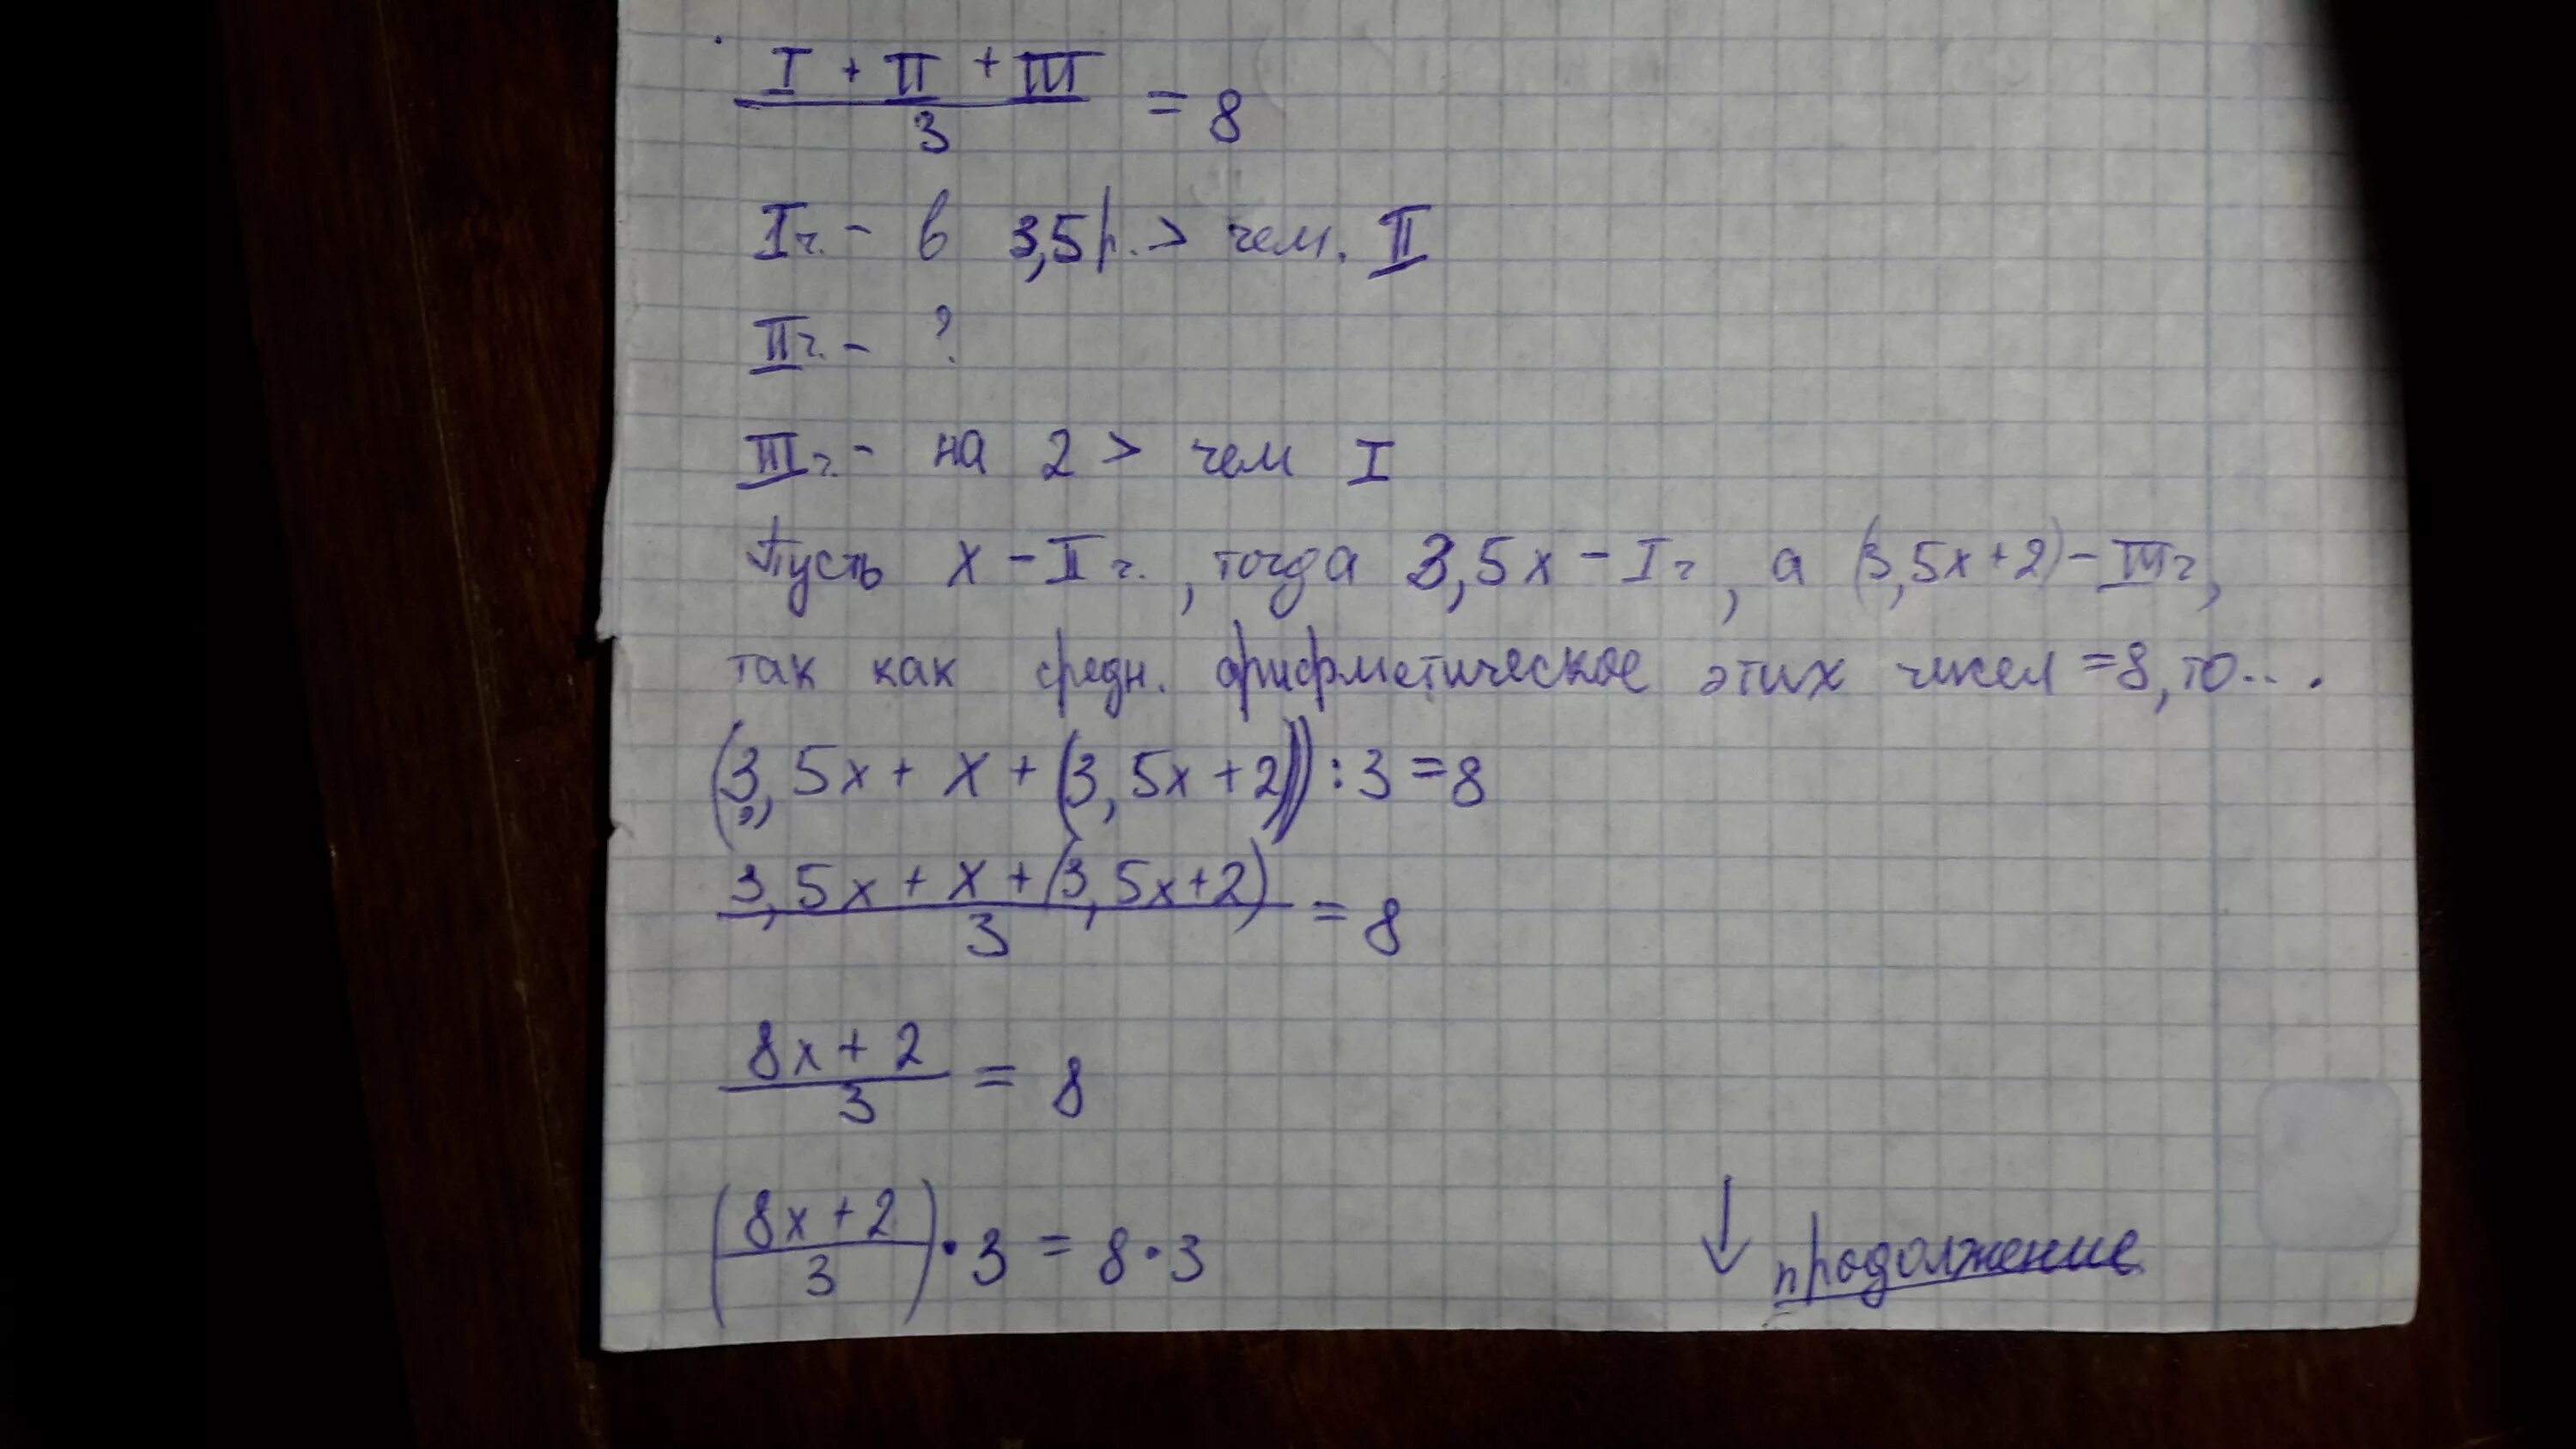 I + II + III
3
= 8
I ч. - в 3,5 р. > чем. II
II ч. - ?
III ч. - на 2 > чем I
Пусть x - II ч., тогда 3,5x - I ч, а (3,5x+2) - III ч,
так как средн. арифметическое этих чисел =8, то...
(3,5x + x + (3,5x+2)) : 3 = 8
3,5x + x + (3,5x+2)
3
= 8
8x + 2
3
= 8
(8x + 2
3
) • 3 = 8 • 3
↓ продолжение